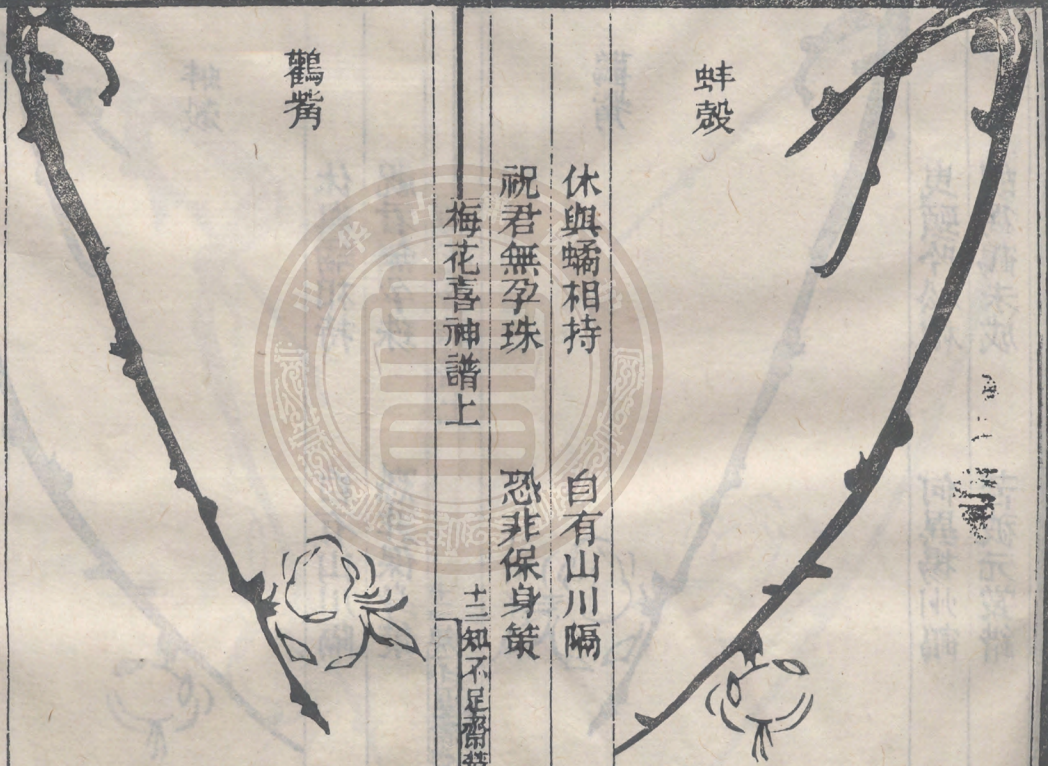 蚌殼
休與𧑐相持　自有山川隔
祝君無孕珠　恐非保身策
梅花喜神譜上
十二
知不足齋
鸛觜